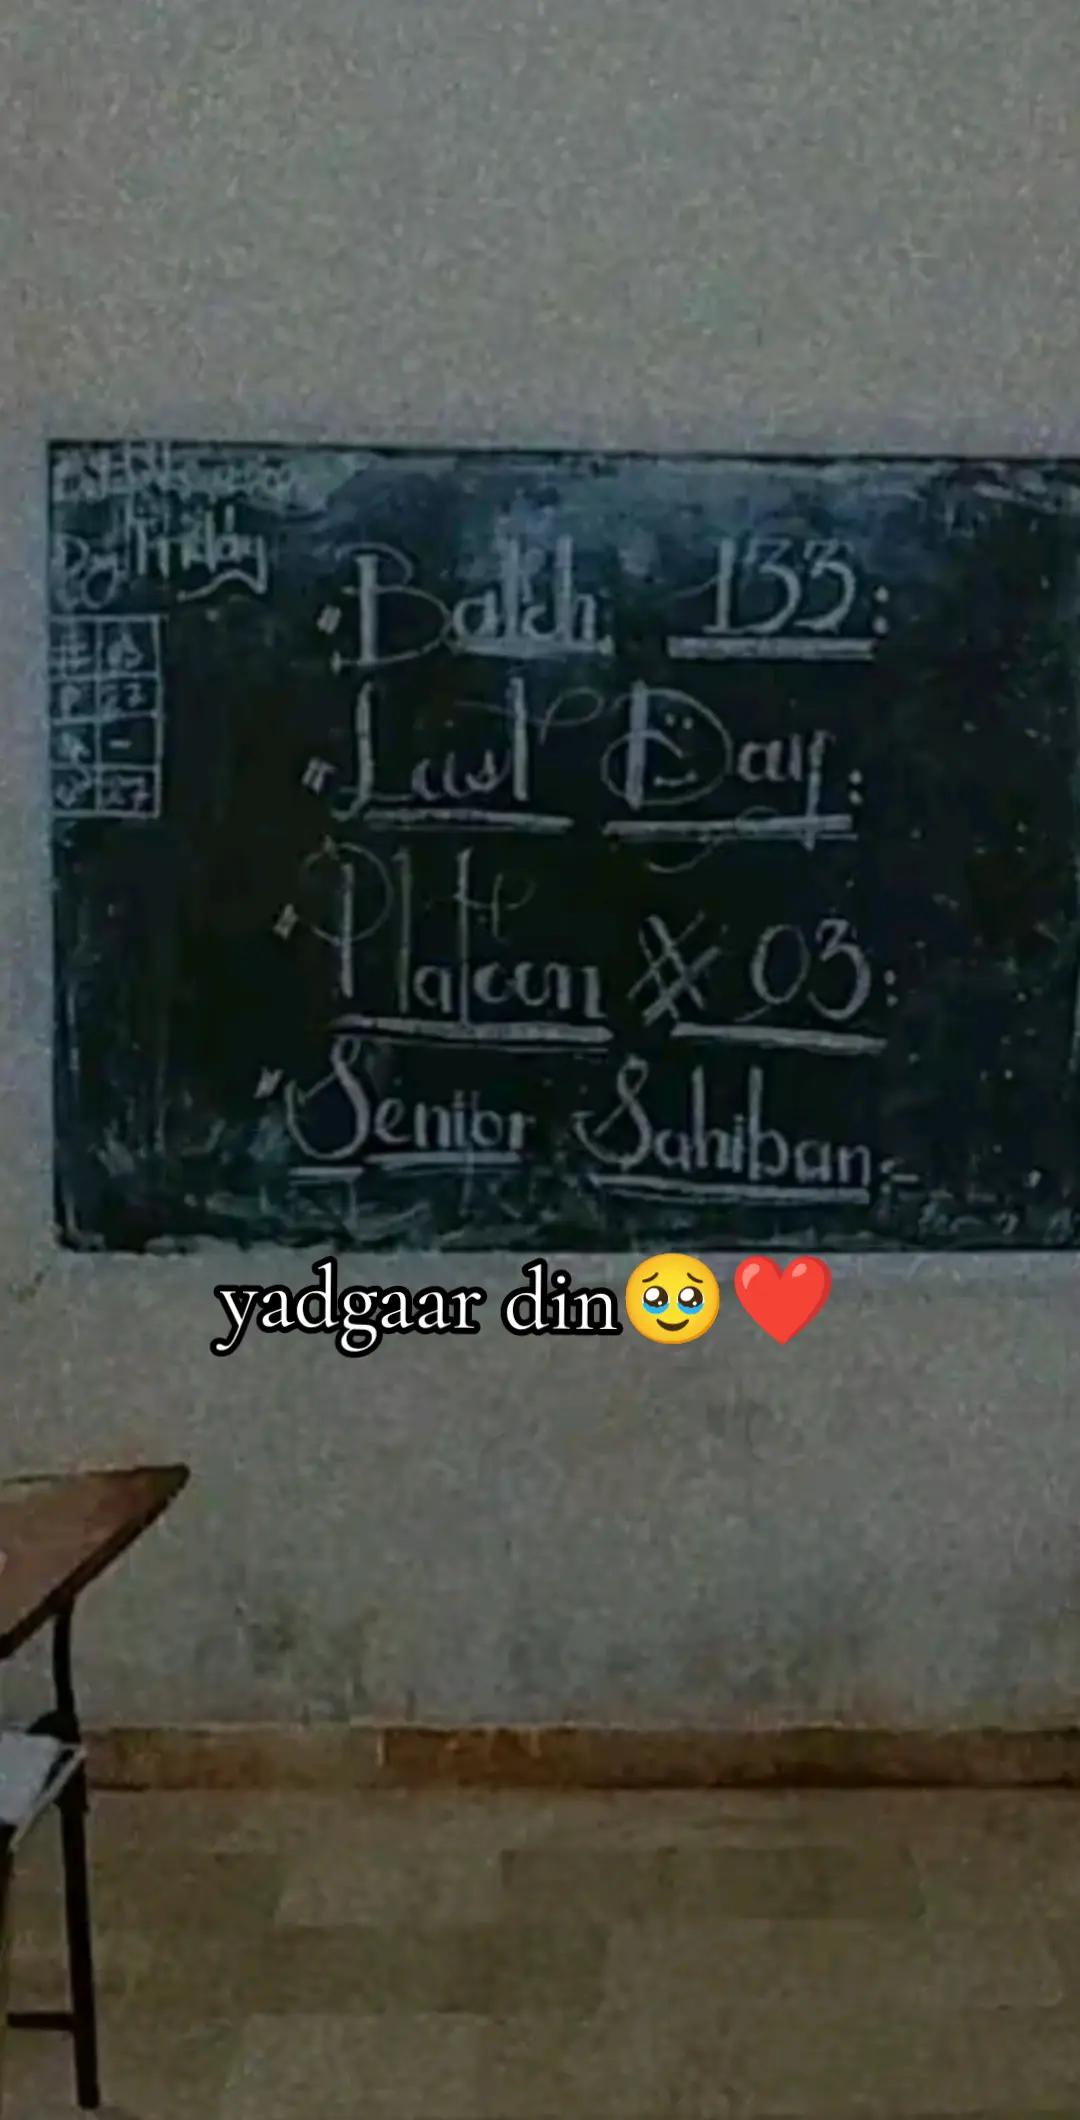 Day: Friday
# 03
P 27
-
27
"Batch 133:
"Last Day:
"Platoon # 03:
"Senior Sahiban:-
yadgaar din🥹❤️